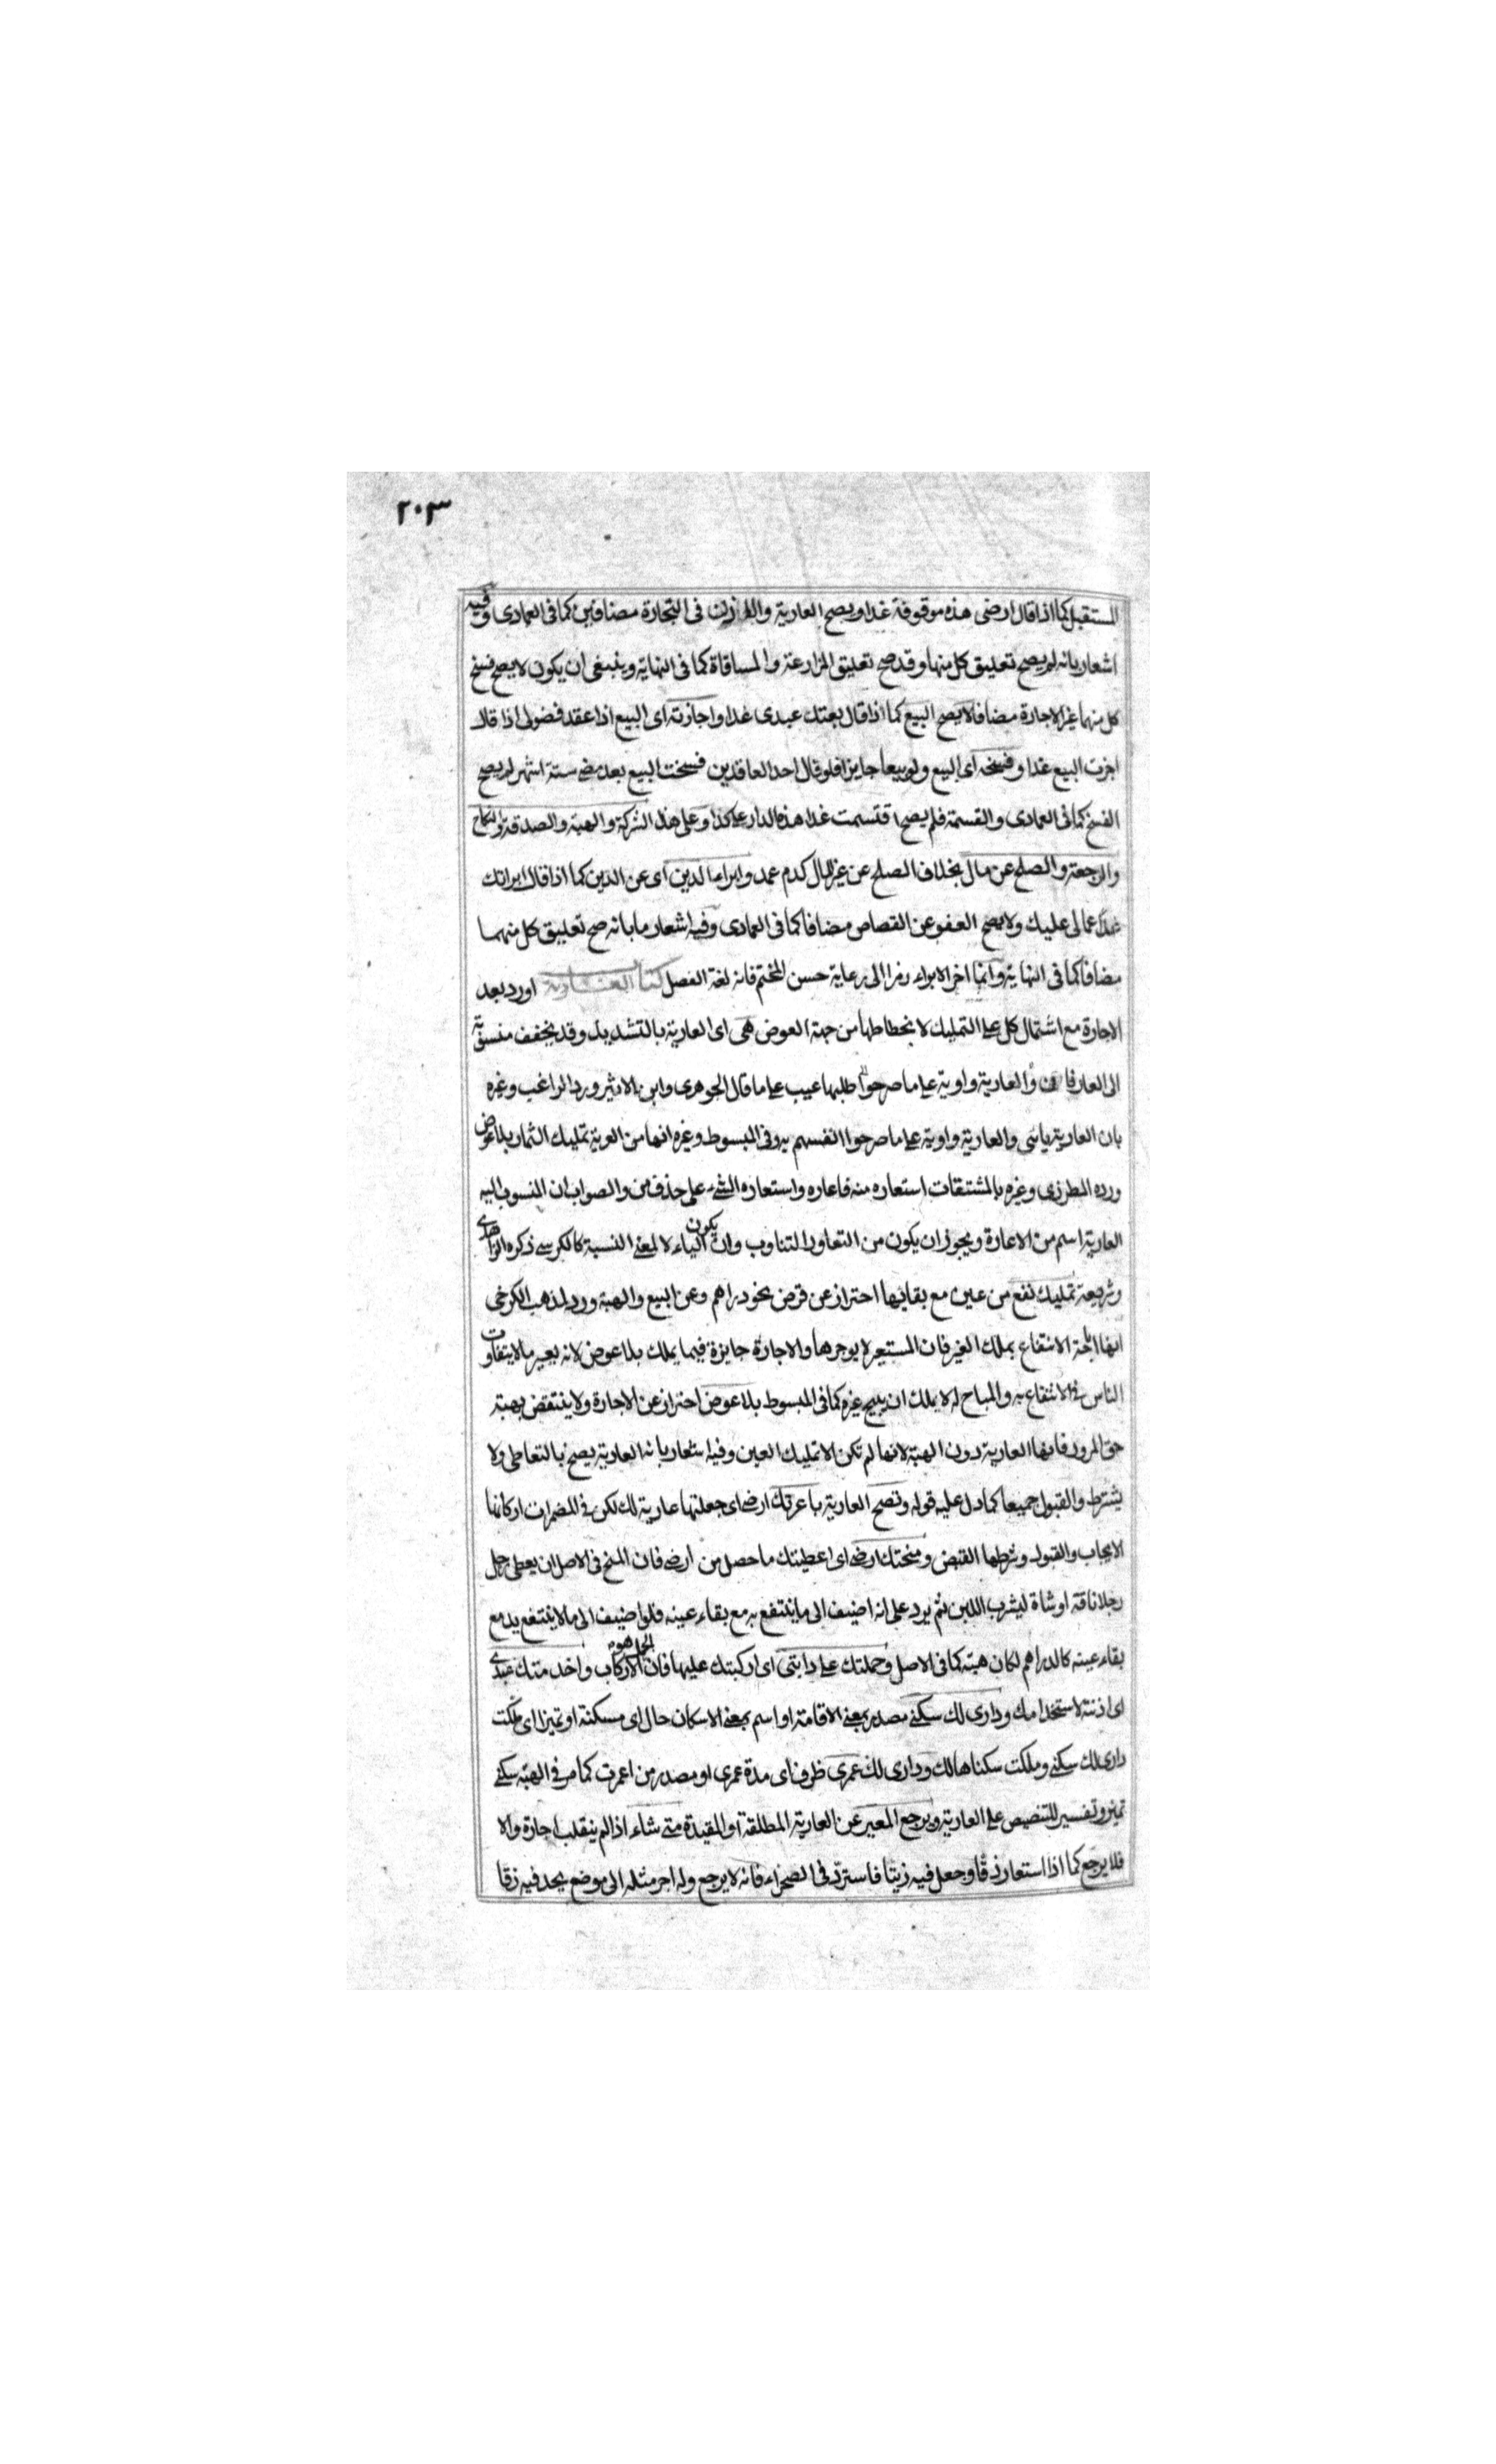 ٢٠٣
المستقبل كما اذا قال ارضى هذه موقوفة غدا ويصح العارية والاذن فى التجارة مضافين كما فى العمادى وفيه
اشعار بانه لم يصح تعليق كل منها وقد صح تعليق المزارعة والمساقاة كما فى النهاية وينبغى ان يكون لا يصح فسخ
كل منهما غير الاجارة مضافا لا يصح البيع كما اذا قال بعتك عبدى غدا واجازته اى البيع اذا عقد فضولى اذا قال
اجزت البيع غدا وفسخه اى البيع ولو بيعا جايزا فلو قال احد العاقدين فسخت البيع بعد مضى ستة اشهر لم يصح
الفسخ كما فى العمادى والقسمة فلم يصح اقتسمت غدا هذه الدار على كذا وعلى هذا الشركة والهبة والصدقة والنكاح
والرجعة والصلح عن مال بخلاف الصلح عن غير المال كدم عمد وابراء الدين اى عن الدين كما اذا قال ابراتك
غدا عمالى عليك ولا يصح العفو عن القصاص مضافا كما فى العمادى وفيه اشعار ما بانه صح تعليق كل منهما
مضافا كما فى النهاية وانما اخر الابراء رمزا الى رعاية حسن المختم فانه لغة الفصل كتاب العارية اورد بعد
الاجارة مع اشتمال كل على التمليك لانحطاطها من جهة العوض هى اى العارية بالتشديد وقد يخفف منسوبة
الى العار فان والعارية واوية على ما صرحوا طلبها عيب على ما قال الجوهرى وابن الاثير ورد الراغب وغيره
بان العارية يائى والعارية واوية على ما صرحوا انفسهم به وفى المبسوط وغيره انها من العرية تمليك الثمار بلا عوض
ورده المطرزى وغيره بالمشتقات استعاره منه فاعاره واستعاره الشىء على حذف من والصواب ان المنسوب اليه
العارية اسم من الاعارة ويجوز ان يكون من التعاور التناوب وان يكون الياء لا لمعنى النسبة كالكرسى ذكره الزاهدى
وشريعة تمليك نفع من عين مع بقائها احتراز عن قرض نحو دراهم وعن البيع والهبة ورد لمذهب الكرخى
انها اباحة الانتفاع بملك الغير فان المستعير لا يوجرها والاجارة جايزة فيما يملك بلا عوض لانه يعير ما لا يتفاوت
الناس فى الانتفاع به والمباح له لا يملك ان يبيح غيره كما فى المبسوط بلا عوض احتراز عن الاجارة ولا ينتقض بهبة
حق المرور فانها العارية دون الهبة لانها لم تكن الا تمليك العين وفيه اشعار بان العارية يصح بالتعاطى ولا
يشترط والقبول جميعا كما دل عليه قوله وتصح العارية باعرتك ارضى اى جعلتها عارية لك لكن فى المضمرات اركانها
الايجاب والقبول وشرطها القبض ومنحتك ارضى اى اعطيتك ما حصل من ارضى فان المنح فى الاصل ان يعطى رجل
رجلا ناقة او شاة ليشرب اللبن ثم يرد على انه اضيف الى ما ينتفع به مع بقاء عينه فلو اضيف الى ما لا ينتفع به مع
بقاء عينه كالدراهم لكان هبة كما فى الاصل وحملتك على دابتى اى اركبتك عليها فان الحمل هو الاركاب واخدمتك عبدى
اى اذنته لاستخدامك ودارى لك سكنى مصدر بمعنى الاقامة او اسم بمعنى الاسكان حال اى مسكنة او تميز اى ملكت
دارى لك سكنى وملكت سكناها لك ودارى لك عمرى ظرف اى مدة عمرى او مصدر من اعمرت كما مر فى الهبة سكنى
تميز وتفسير للتنصيص على العارية ويرجع المعير عن العارية المطلقة او المقيدة متى شاء اذا لم ينقلب اجارة والا
فلا يرجع كما اذا استعار زقا وجعل فيه زيتا فاسترد فى الصحراء فانه لا يرجع وله اجر مثله الى موضع يجد فيه زقا